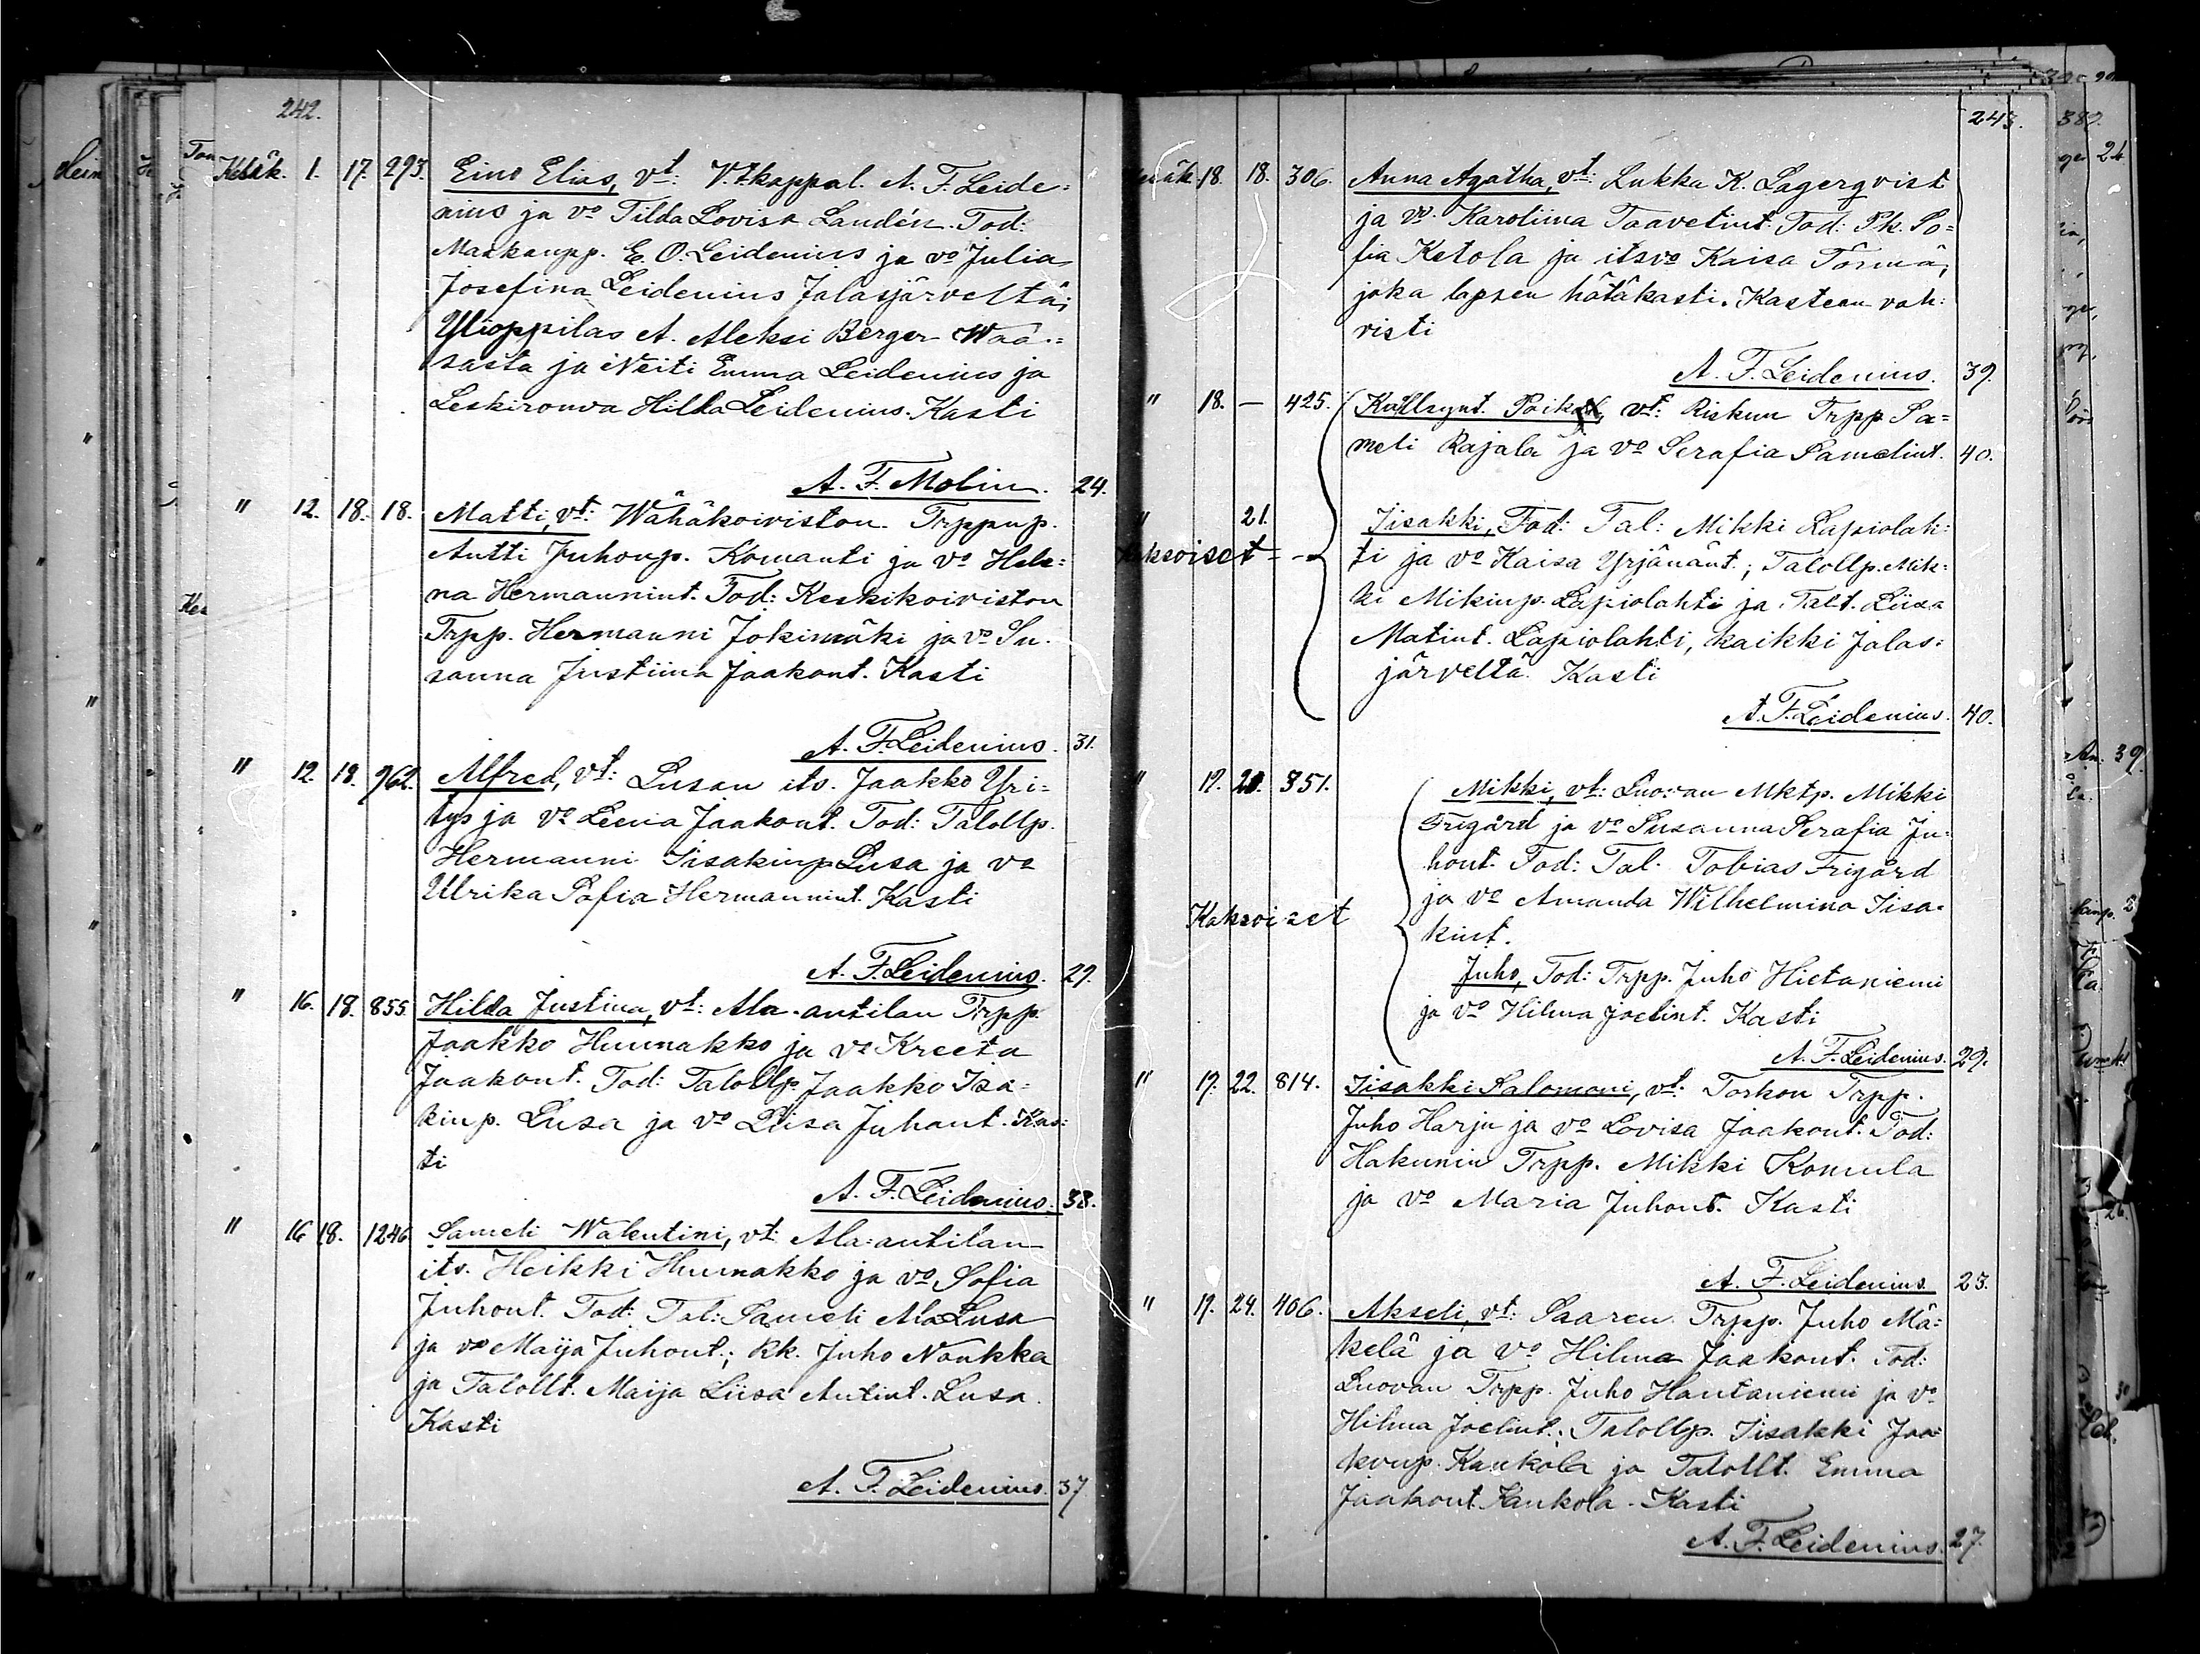 242.
Kesäk. 1. 17. 293. Eino Elias, vt: V.t.kappal. A. F. Leide=
nius ja vo Tilda Lovisa Landén. Tod:
Maakaupp. E. O. Leidenius ja vo Julia
Josefina Leidenius Jalasjärveltä;
Ylioppilas A. Aleksi Berger Waa=
sasta ja Neiti Emma Leidenius ja
Leskirouva Hilda Leidenius. Kasti
A. F. Molin. 24.
" 12. 18. 18. Matti, vt: Wähäkoiviston Trppnp.
Antti Juhonp. Komanti ja vo Hele=
na Hermannint. Tod: Keskikoiviston
Trpp. Hermanni Jokimäki ja vo Su=
sanna Justiina Jaakont. Kasti
A. F. Leidenius. 31.
" 12. 18. 962. Alfred, vt: Lusan its. Jaakko Yri=
tys ja vo Leena Jaakont. Tod: Talollp.
Hermanni Iisakinp. Lusa ja vo
Ulrika Sofia Hermannint. Kasti
A. F. Leidenius. 29.
" 16. 18. 855. Hilda Justina, vt: Ala-antilan Trpp.
Jaakko Hunnakko ja vo Kreeta
Jaakont. Tod: Talollp. Jaakko Isa=
kinp. Lusa ja vo Liisa Juhont. Kas=
ti
A. F. Leidenius. 38.
" 16 18. 1246. Sameli Walentini, vt: Ala=antilan
its. Heikki Hunnakko ja vo Sofia
Juhont. Tod: Tal: Sameli Ala Lusa
ja vo Maija Juhont.; Rk. Juho Nankka
ja Talollt. Maija Liisa Antint. Lusa.
Kasti
A. F. Leidenius. 37
243.
18. 18. 306. Anna Agatha, vt: Lukka K. Lagerqvist
ja vo Karolima Taavetint. Tod: Pk. So=
fia Ketola ja itsvo Kaisa Törmä,
joka lapsen hätäkasti. Kasteen vah=
visti
A. F. Leidenius. 39.
" 18. — 425. Kuollsynt. Poika, vt: Riskun Trpp. Sa=
meli Rajala ja vo Serafia Samelint. 40.
" 21. Iisakki, Tod: Tal: Mikki Lapiolah=
ti ja vo Kaisa Yrjänänt.; Talollp. Mik=
ki Mikinp. Lapiolahti ja Talt. Liisa
Matint. Lapiolahti, kaikki Jalas=
järveltä. Kasti
A. F. Leidenius. 40.
" 19. 20. 351. Mikki, vt: Luovan Mktp. Mikki
Frigård ja vo Susanna Serafia Ju=
hont. Tod: Tal. Tobias Frigård
ja vo Amanda Wilhelmina Iisa=
Kaksoiset
kint.
Juho, Tod: Trpp. Juho Hietaniemi
ja vo Hilma Joelint. Kasti
A. F. Leidenius. 29.
" 19. 22. 814. Iisakki Salomoni, vt. Torkon Trpp.
Juho Harju ja vo Lovisa Jaakont. Tod:
Hakunin Trpp. Mikki Komula
ja vo Maria Juhont. Kasti
A. F. Leidenius. 25.
" 19. 24. 406. Akseli, vt: Saaren Trpp. Juho Mä=
kelä ja vo Hilma Jaakont. Tod:
Luovan Trpp. Juho Hautaniemi ja vo
Hilma Joelint.; Talollp. Iisakki Jaa=
konp. Kankola ja Talollt. Emma
Jaakont. Kankola. Kasti
A. F. Leidenius. 27.